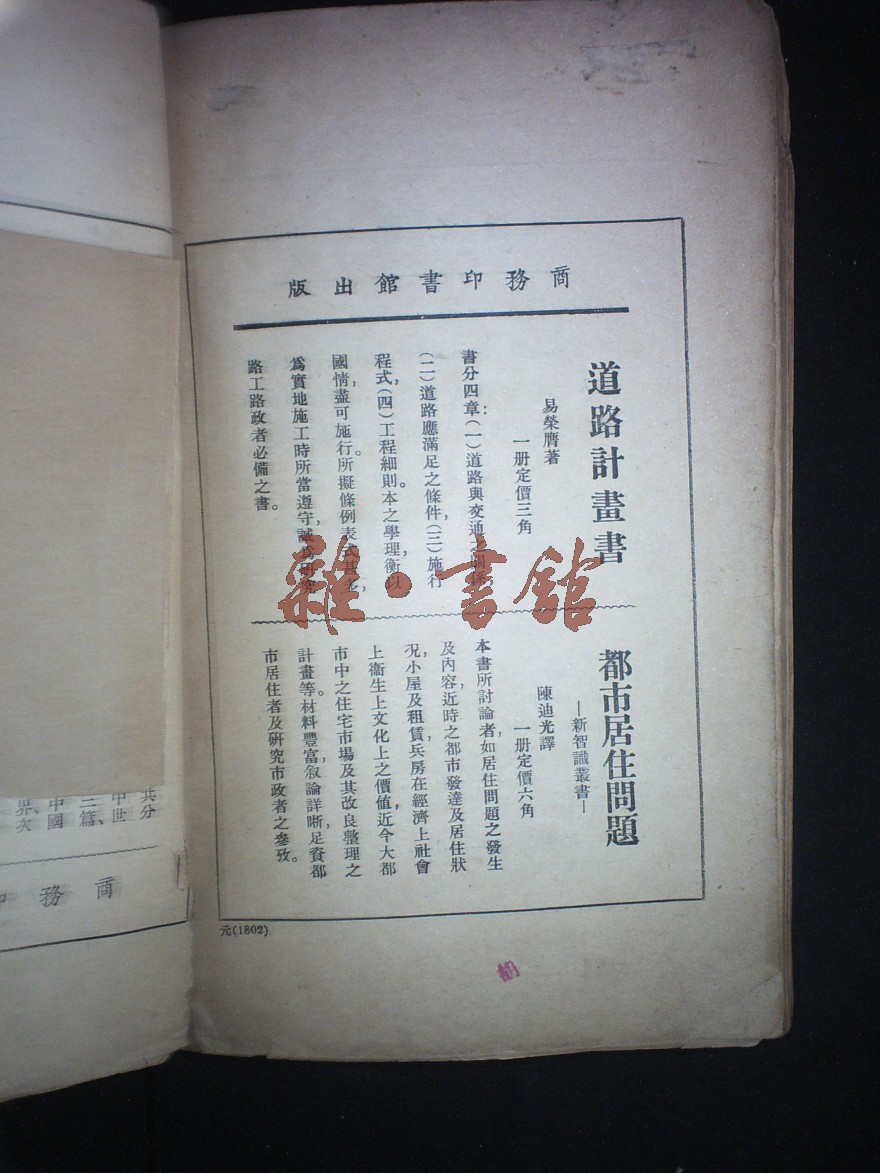 商務印書館出版
道路計畫書
易榮膺著
一册定價三角
書分四章：(一)道路與交通之關係，
(二)道路應滿足之條件(三)施行
程式，(四)工程細則。本之學理衡以
國情，盡可施行。所擬條例表式甚多，
爲實地施工時所當遵守，誠爲研究
路工路政者必備之書。
都市居住問題
—新智識叢書—
陳迪光譯
一册定價六角
本書所討論者，如居住問題之發生
及內容，近時之都市發達及居住狀
況，小屋及租賃兵房在經濟上社會
上衞生上文化上之價値，近今大都
市中之住宅市場及其改良整理之
計畫等。材料豐富，叙論詳晰，足資都
市居住者及硏究市政者之參攷。
元(1802)
雜·書館
商務印